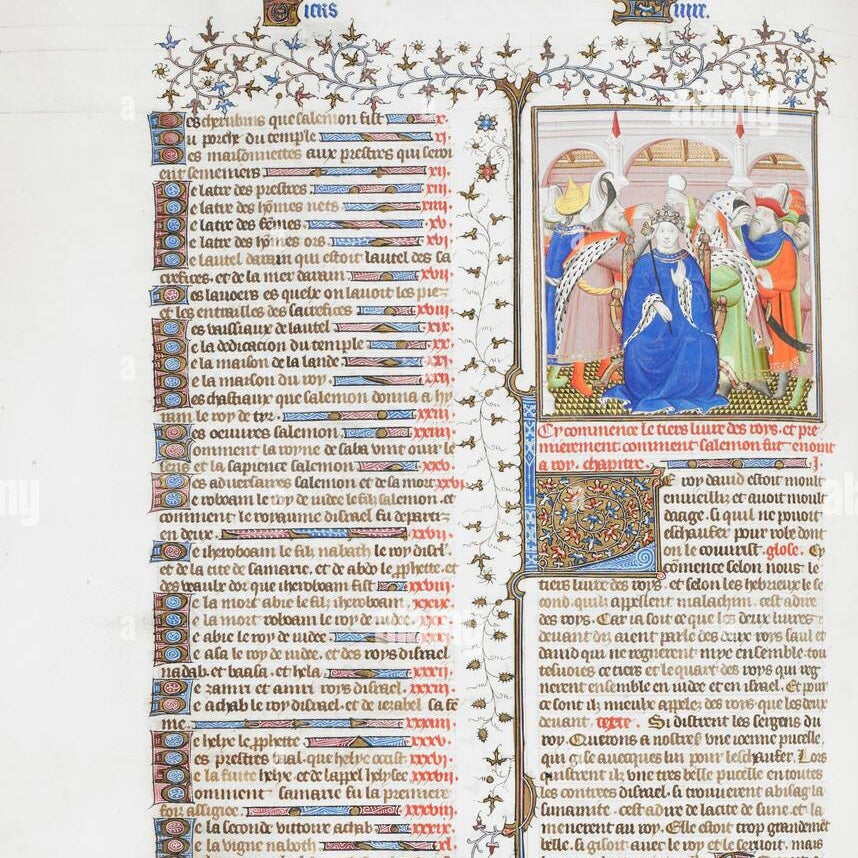 Tiers
Liure.
Des cherubins que salemon fist .x.
Du porche du temple .xi.
Des maisonnettes aux prestres qui seroi
ent semeniers .xii.
De latre des prestres .xiii.
De latre des hommes nets .xiiii.
De latre des femes .xv.
De latre des homes ors .xvi.
De lautel darain qui estoit lautel des sa
crefices et de la mer darain .xvii.
Des lauoers es quelx on lauoit les piez
et les entrailles des sacrefices .xviii.
Des vaissiaux de lautel .xix.
De la dedication du temple .xx.
De la maison de la lande .xxi.
De la maison du roy .xxii.
Des chastiaux que salemon donna a hy
ram le roy de tyr .xxiii.
Des oeuures salemon .xxiiii.
Comment la royne de saba vint ouir le
sens et la sapience salemon .xxv.
Des aduersaires salemon et de sa mort .xxvi.
De roboam le roy de iudee le filz salemon . et
comment le royaume disrael fu departi
en deux .xxvii.
De iheroboam le filz nabath le roy disrl.
et de la cite de samarie. et de abdo le pphete. et
des veaulx dor que iheroboam fist .xxviii.
De la mort abie le filz iheroboam .xxix.
De la mort roboam le roy de iudee .xxx.
De abie le roy de iudee .xxxi.
De asa le roy de iudee. et des roys disrael
nadab. et baasa. et hela .xxxii.
De zamri et amri roys disrael .xxxiii.
De achab le roy disrael. et de iezabel sa fe
me. .xxxiiii.
De helye le pphete .xxxv.
Des prestres baal. que helye occist .xxxvi.
De la fuite helye. et de lappel helysee .xxxvii.
Comment samarie fu la premiere
foiz assigiee .xxxviii.
De la seconde victoire achab .xxxix.
De la vigne naboth .xl.
Cy commence le tiers liure des roys. et pre
mierement comment salemon fut enoint
a roy. chapitre. .i.
Le roy dauid estoit moult
enuieilliz et auoit moult
daage. si quil ne pouoit
eschaufer pour robe dont
on le couurist. glose. Cy
comence selon nous. le
tiers liure des roys. et selon les hebrieux le se
cond. quilz appellent malachim. cest a dire
des roys. Car ia soit ce que les deux liures
deuant diz aient parle des deux roys saul et
dauid qui ne regnerent mye ensemble. tou
tesuoies ce tiers et le quart des roys qui reg
nerent ensemble en iudee et en israel. Et pour
ce sont ilz mieulx appelez des roys. que les deux
deuant. texte. Si distrent les sergens du
roy. Querons a nostre sire vne ieune pucelle,
qui gise auecques lui pour leschaufer. Lors
quistrent ilz vne tres belle pucelle en toutes
les contrees disrael. si trouuerent abisag la
sunamite. cest a dire de la cite de sune. et la
menerent au roy. Elle estoit trop grandemet
belle. si gisoit auec le roy et le seruoit. mais
alamy